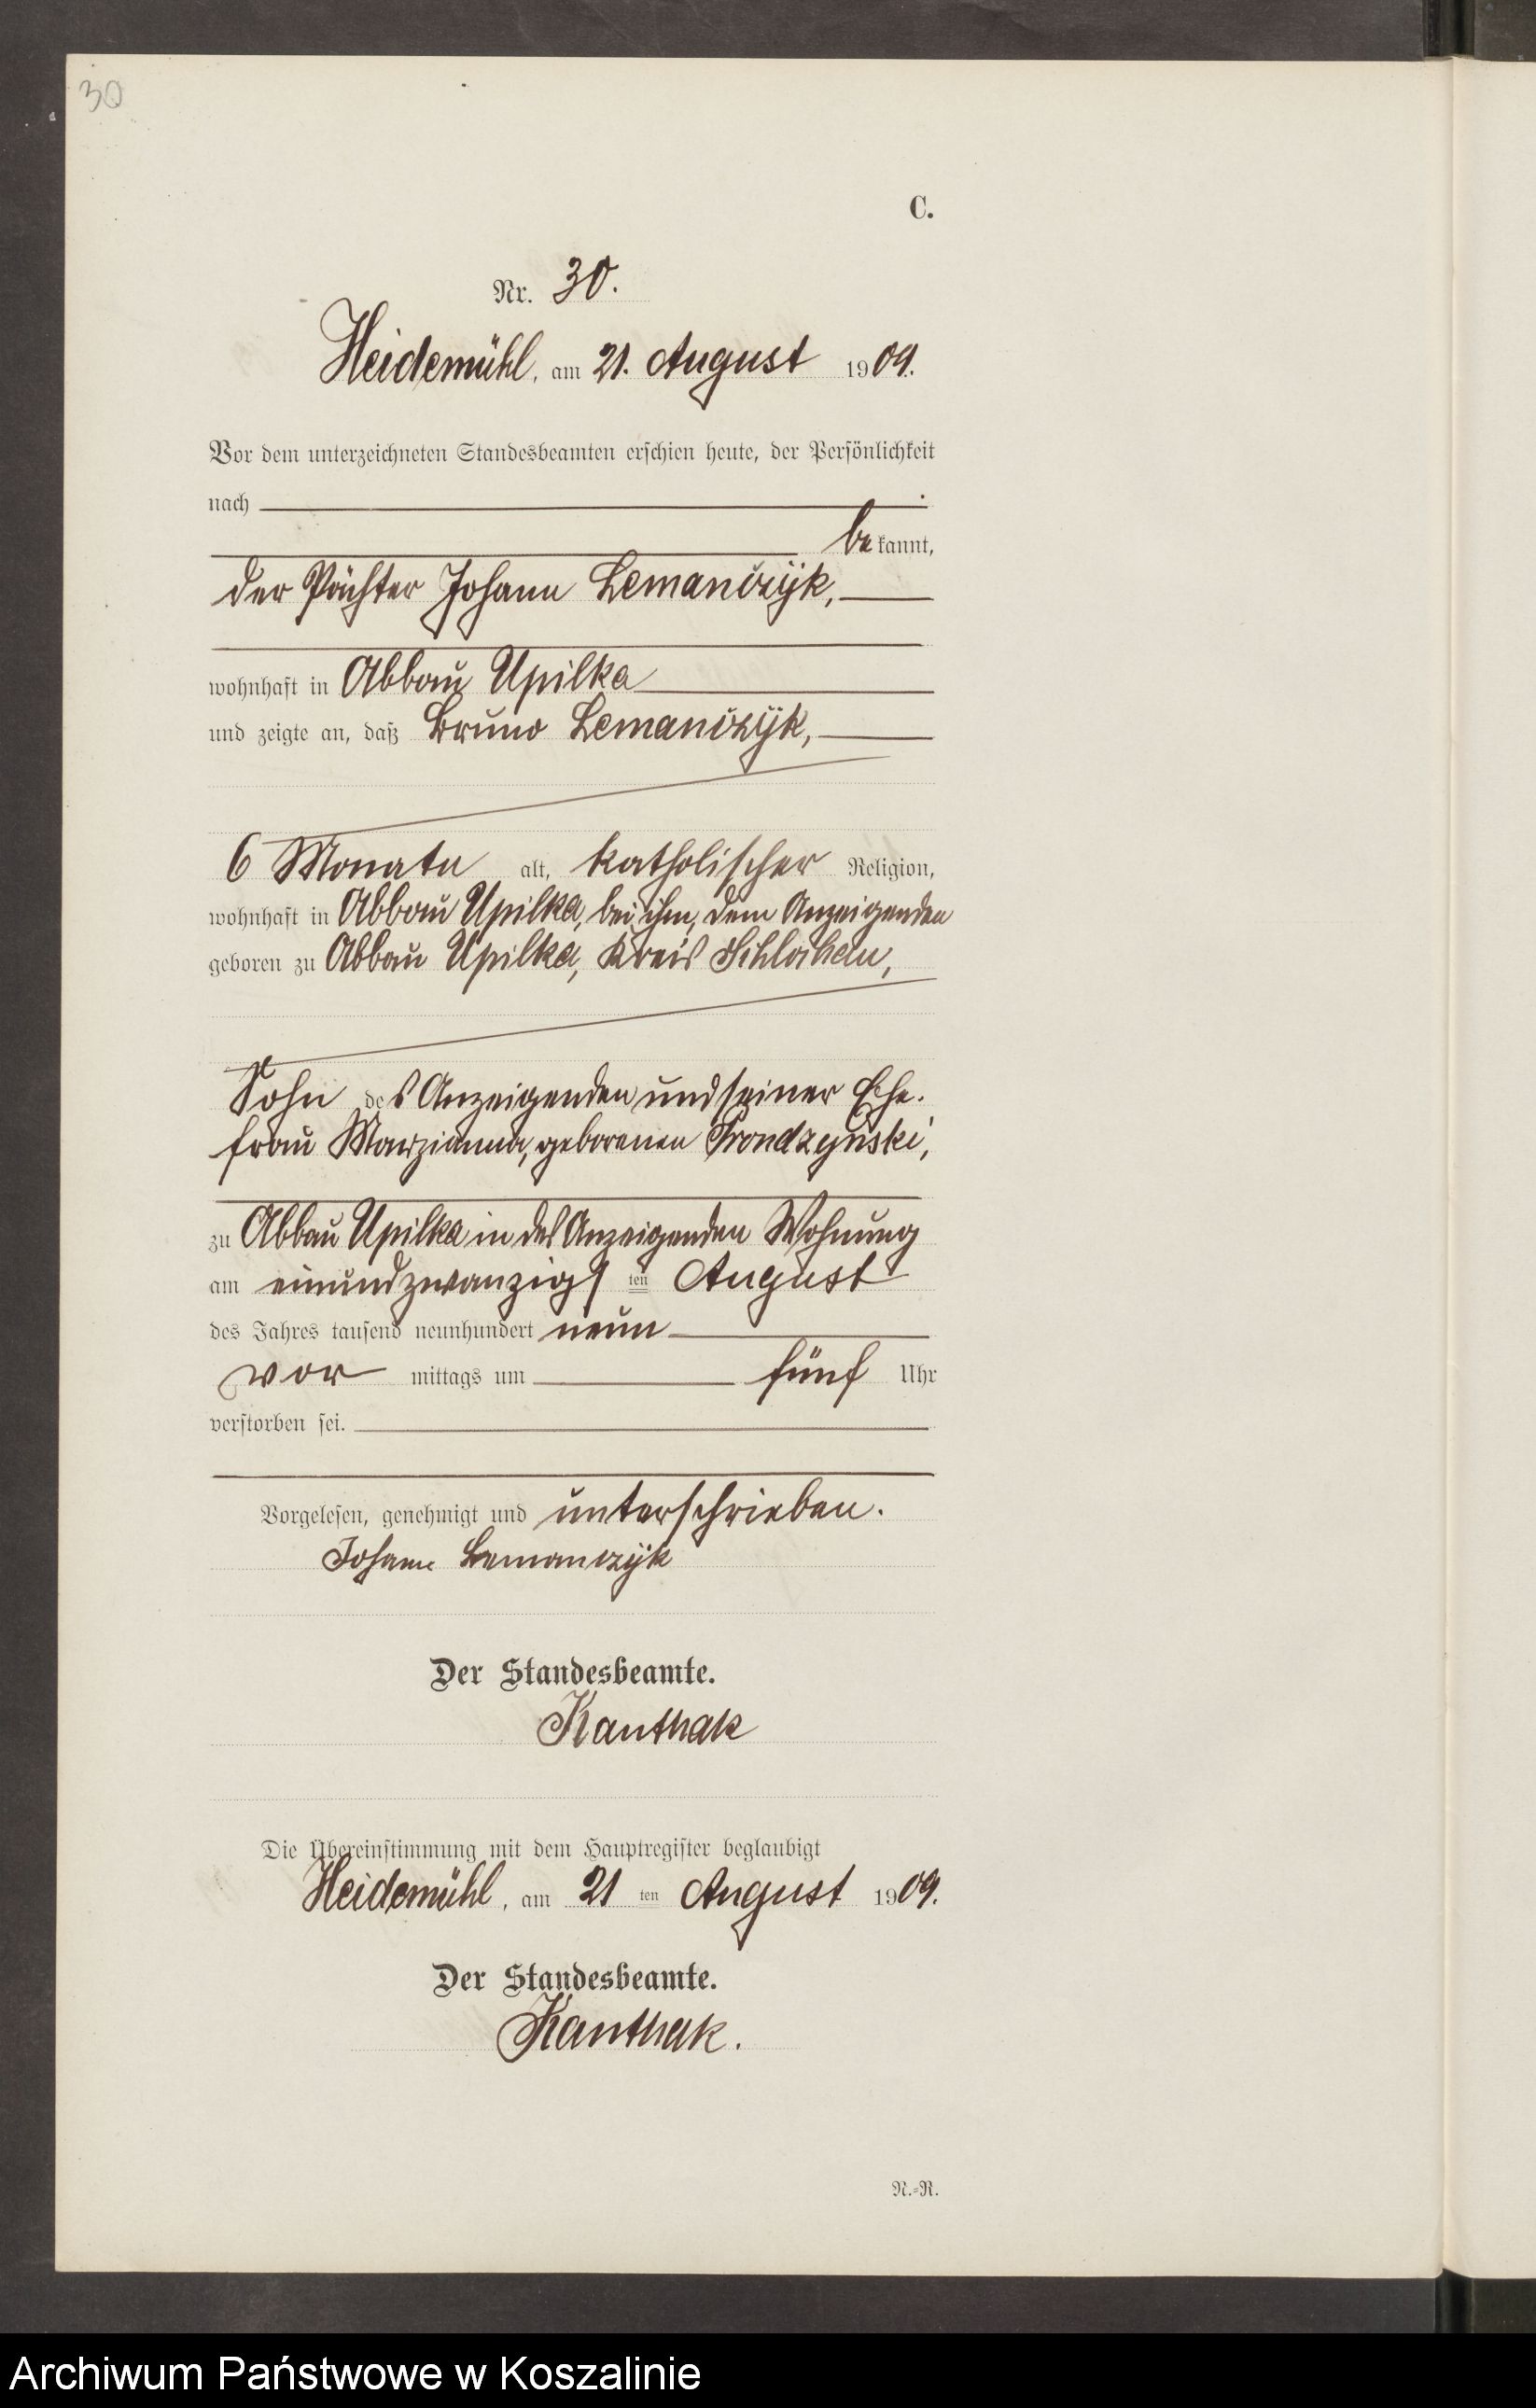 30
C.
Nr. 30.
Heidemühl, am 21. August 1909.
Vor dem unterzeichneten Standesbeamten erschien heute, der Persönlichkeit
nach
bekannt,
der Pächter Johann Lemanczyk,
wohnhaft in Abbau Upilka
und zeigte an, daß Bruno Lemanczyk,
6 Monate alt, katholischer Religion,
wohnhaft in Abbau Upilka, bei ihm, dem Anzeigenden
geboren zu Abbau Upilka, Kreis Schlochau,
Sohn des Anzeigenden und seiner Ehe-
frau Marzianna, geborenen Prondzynski,
zu Abbau Upilka in des Anzeigenden Wohnung
am einundzwanzigsten August
des Jahres tausend neunhundert neun
vormittags um fünf Uhr
verstorben sei.
Vorgelesen, genehmigt und unterschrieben.
Johann Lemanczyk
Der Standesbeamte.
Kanthak
Die Übereinstimmung mit dem Hauptregister beglaubigt
Heidemühl, am 21ten August 1909.
Der Standesbeamte.
Kanthak.
N.=R.
Archiwum Państwowe w Koszalinie